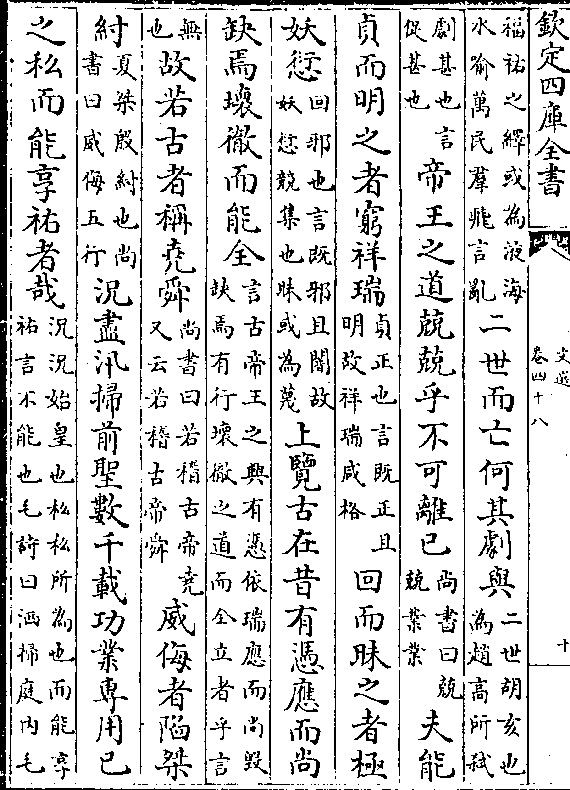 欽定四庫全書
文選
卷四十八
十
福祐之繹或為液海水喻萬民羣飛言亂二世而亡何其劇與二世胡亥也為趙高所弑
劇甚也言促甚也帝王之道兢兢乎不可離已尚書曰兢兢業業夫能
貞而明之者窮祥瑞貞正也言既正且明故祥瑞咸格回而昧之者極
妖愆回邪也言既邪且闇故妖愆競集也昧或為蔑上覽古在昔有憑應而尚
缺焉壞徹而能全言古帝王之興有憑依瑞應而尚毀缺焉有行壞徹之道而全立者乎言
無也故若古者稱堯舜尚書曰若稽古帝堯又云若稽古帝舜威侮者陷桀
紂夏桀殷紂也尚書曰威侮五行況盡汛掃前聖數千載功業專用已
之私而能享祐者哉況況始皇也私私所為也而能享祐言不能也毛詩曰洒掃庭内毛